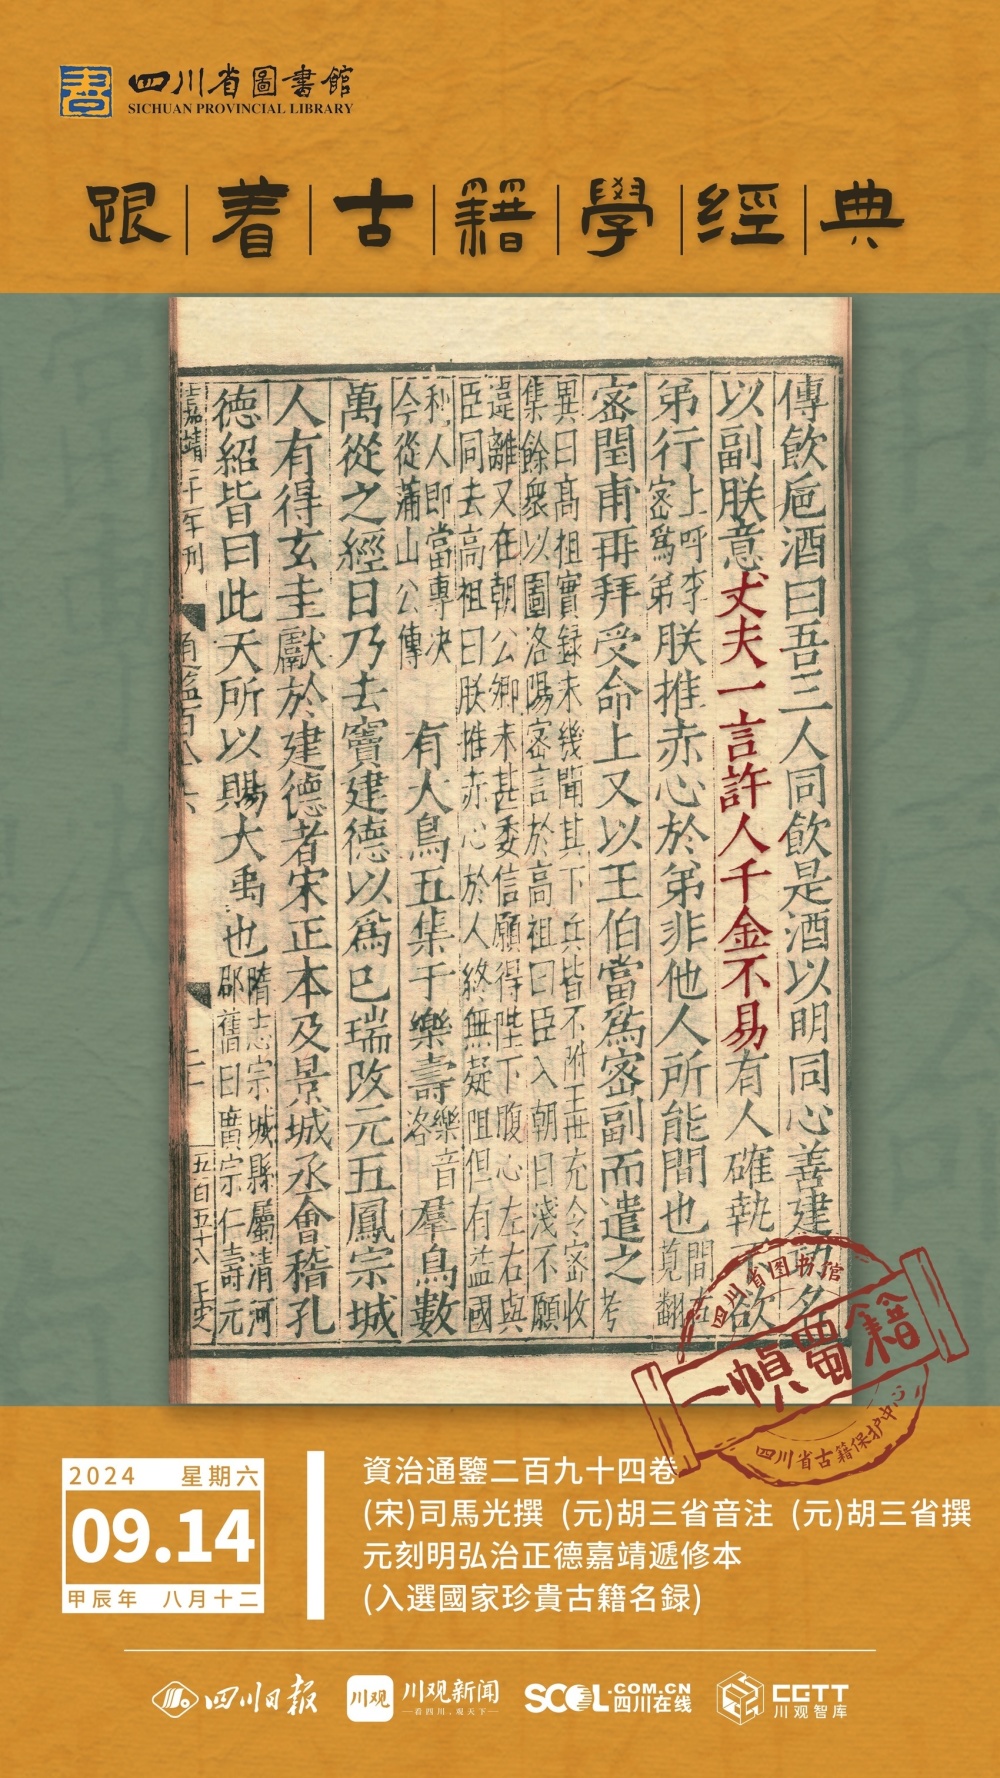 四川省圖書館
SICHUAN PROVINCIAL LIBRARY
跟着古籍學經典
傳飲巵酒曰吾三人同飲是酒以明同心善建功名
以副朕意丈夫一言許人千金不易有人確執不欲
弟行上呼李密爲弟朕推赤心於弟非他人所能間也間古莧翻
密閏甫再拜受命上又以王伯當爲密副而遣之考
異曰高祖實録未幾聞其下兵皆不附王世充令密收
集餘衆以圖洛陽密言於高祖曰臣入朝日淺不願
違離又在朝公卿未甚委信願得陛下腹心左右與
臣同去高祖曰朕推赤心於人終無疑阻但有益國
利人即當專决
今從蒲山公傳
有大鳥五集于樂壽樂音洛羣鳥數
萬從之經日乃去竇建德以爲已瑞改元五鳳宗城
人有得玄圭獻於建德者宋正本及景城丞會稽孔
德紹皆曰此天所以賜大禹也隋志宗城縣屬清河郡舊曰廣宗仁壽元
嘉靖二年刊
通鑑百八六
二
五百五十八
四川省图书馆
一幀蜀籍
四川省古籍保护中心
2024 星期六
09.14
甲辰年 八月十二
資治通鑒二百九十四卷
(宋)司馬光撰 (元)胡三省音注 (元)胡三省撰
元刻明弘治正德嘉靖遞修本
(入選國家珍貴古籍名録)
四川日报
川观
川观新闻
看四川，观天下
SCOL.COM.CN
四川在线
CGTT
川观智库